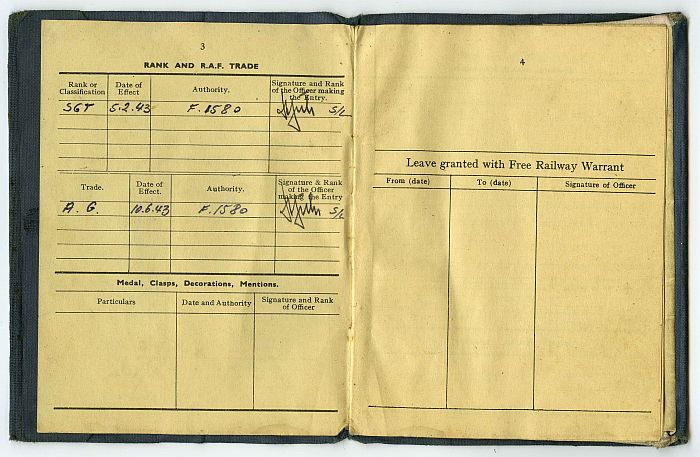 3
RANK AND R.A.F. TRADE
Rank or Classification Date of Effect Authority. Signature and Rank of the Officer making the Entry.
SGT 5.2.43 F.1580 S/L
Trade. Date of Effect. Authority. Signature & Rank of the Officer making the Entry
A.G. 10.6.43 F.1580 S/L
Medal, Clasps, Decorations, Mentions.
Particulars Date and Authority Signature and Rank of Officer
4
Leave granted with Free Railway Warrant
From (date) To (date) Signature of Officer